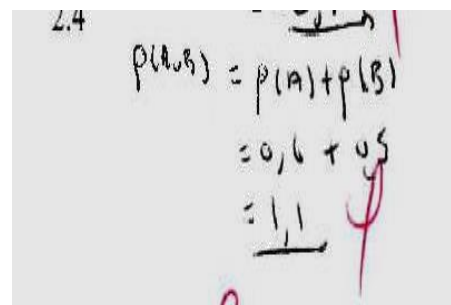 2.4
P(A∪B) = P(A)+P(B)
= 0,6 + 0,5
= 1,1